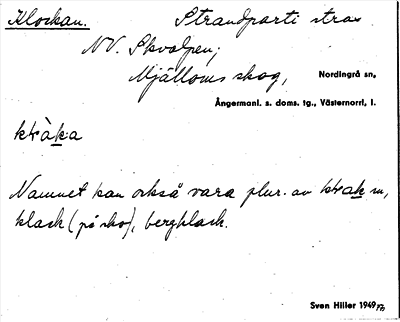 Klockan. Strandparti strax
NV. Skvalpen;
Mjälloms skog, Nordingrå sn,
Ångermanl. s. doms. tg., Västernorrl. l.
Namnet kan också vara plur. av
klack (på sko), bergklack.
Sven Hiller 1949